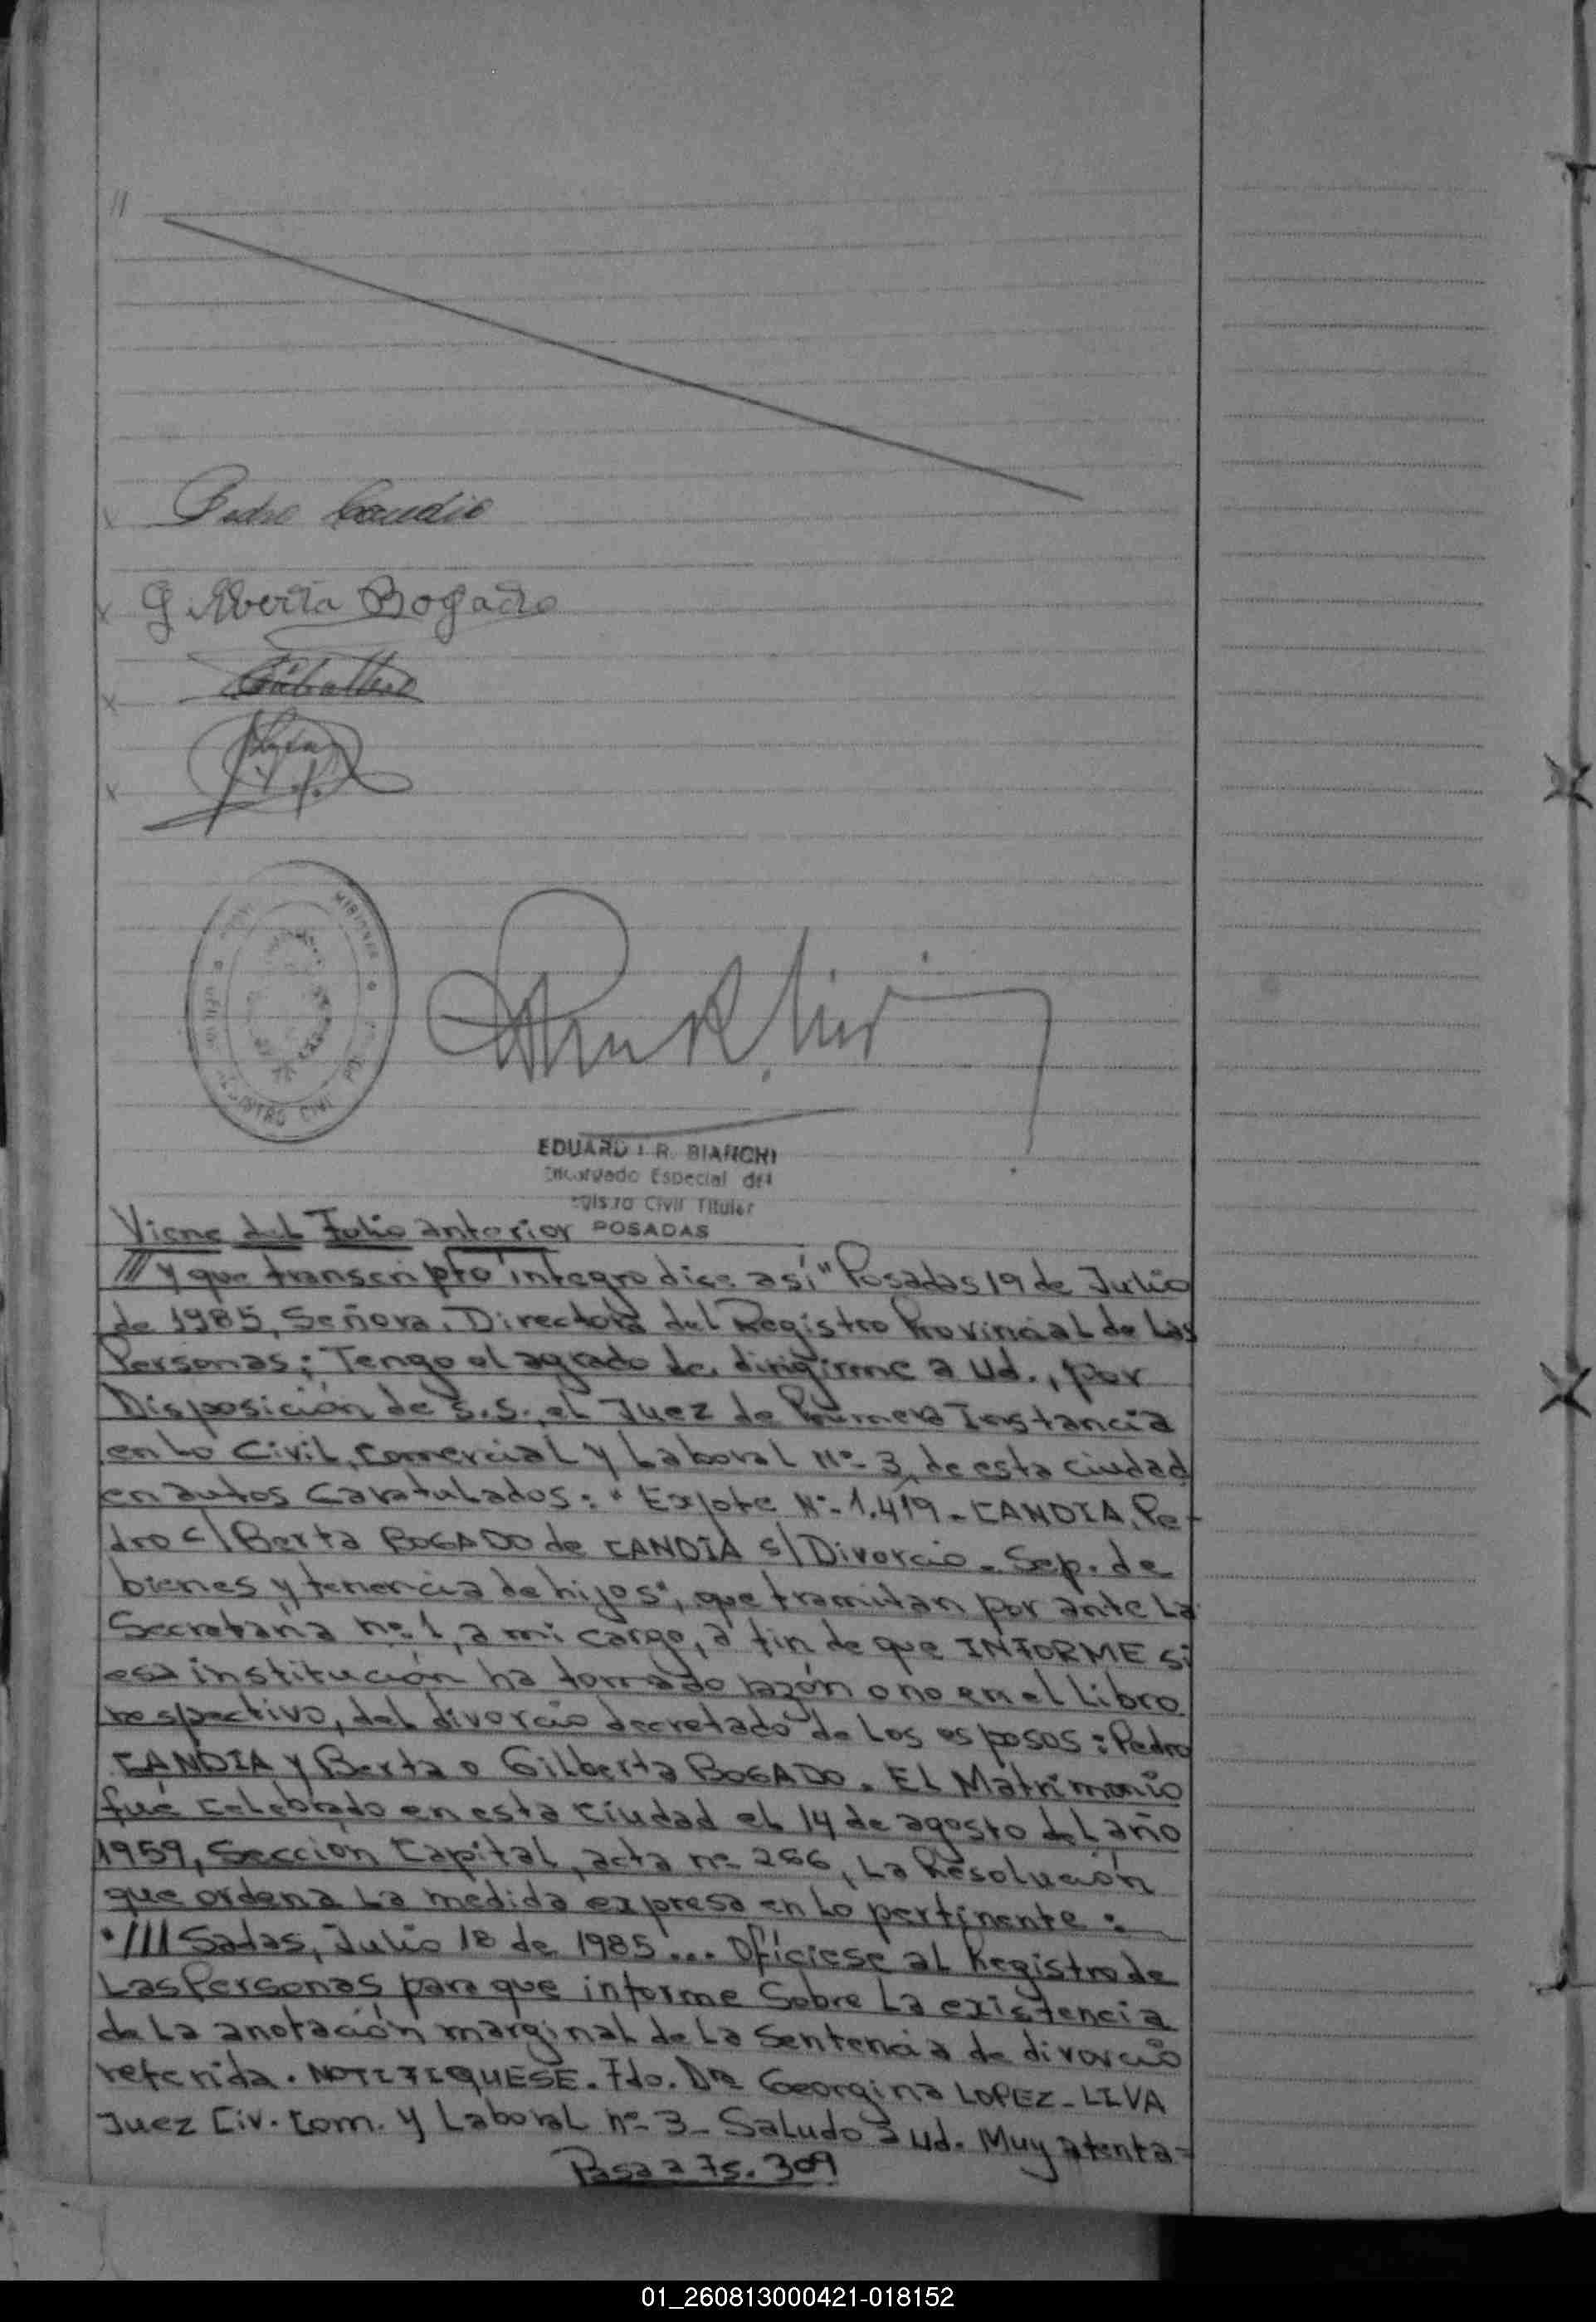 //
Pedro Candia
Gilberta Bogado
Caballero
MISIONES
REGISTRO CIVI
EDUARDO R. BIANCHI
Encargado Especial del
Registro Civil Titular
POSADAS
Viene del Folio anterior
/// y que transcripto integro dice así "Posadas 19 de Julio
de 1985, Señora. Directora del Registro Provincial de Las
Personas: Tengo el agrado de dirigirme a Ud., por
Disposición de S.S., el Juez de Primera Instancia
en Lo Civil, Comercial y Laboral Nº- 3, de esta ciudad
en autos Caratulados: "Expte Nº- 1.419 - CANDIA, Pe-
dro c/ Berta BOGADO de CANDIA s/ Divorcio - Sep. de
bienes y tenencia de hijos", que tramitan por ante La
Secretaría nº 1, a mi cargo, a fin de que INFORME si
esa institución ha tomado razón o no en el Libro
respectivo, del divorcio decretado de Los esposos: Pedro
CANDIA y Berta o Gilberta BOGADO. El Matrimonio
fué celebrado en esta ciudad el 14 de agosto del año
1959, Sección Capital, acta nº 266, La Resolución
que ordena La medida expresa en Lo pertinente:
"///Sadas, Julio 18 de 1985... Ofíciese al Registro de
Las Personas para que informe Sobre La existencia
de La anotación marginal de La Sentencia de divorcio
referida. NOTIFIQUESE. Fdo. Dra Georgina LOPEZ - LIVA
Juez Civ. Com. y Laboral nº- 3 - Saludo a Ud. Muy atenta-
Pasa a Fs. 309
01_260813000421-018152